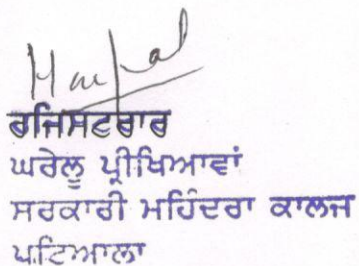 ਰਜਿਸਟਰਾਰ
ਘਰੇਲੂ ਪ੍ਰੀਖਿਆਵਾਂ
ਸਰਕਾਰੀ ਮਹਿੰਦਰਾ ਕਾਲਜ
ਪਟਿਆਲਾ